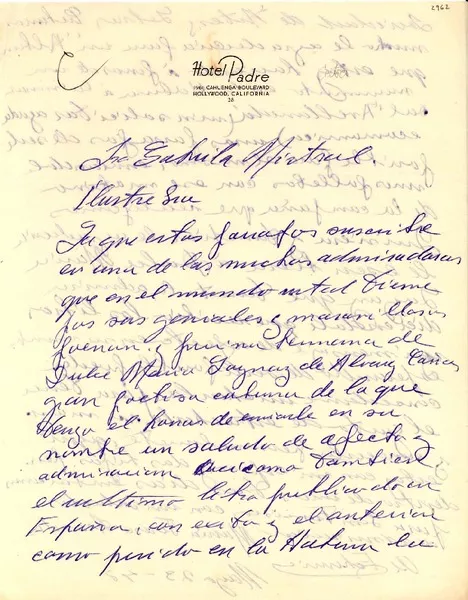 2962
Hotel Padre
1961 CAHUENGA BOULEVARD
HOLLYWOOD, CALIFORNIA
28
Sra Gabriela Mistral.
Ilustre Sra
La que estas suscribe
es una de las muchas admiradoras
que en el mundo usted tiene
por sus geniales y maravillosos
poemas y prima hermana de
Dulce Maria Loynaz de Alvarez Cañas
gran poetisa cubana de la que
tengo el honor de enviarle en su
nombre un saludo de afecto y
admiracion asi como tambien
el ultimo libro publicado en
España, con exito y el anterior
como perido en la Habana le